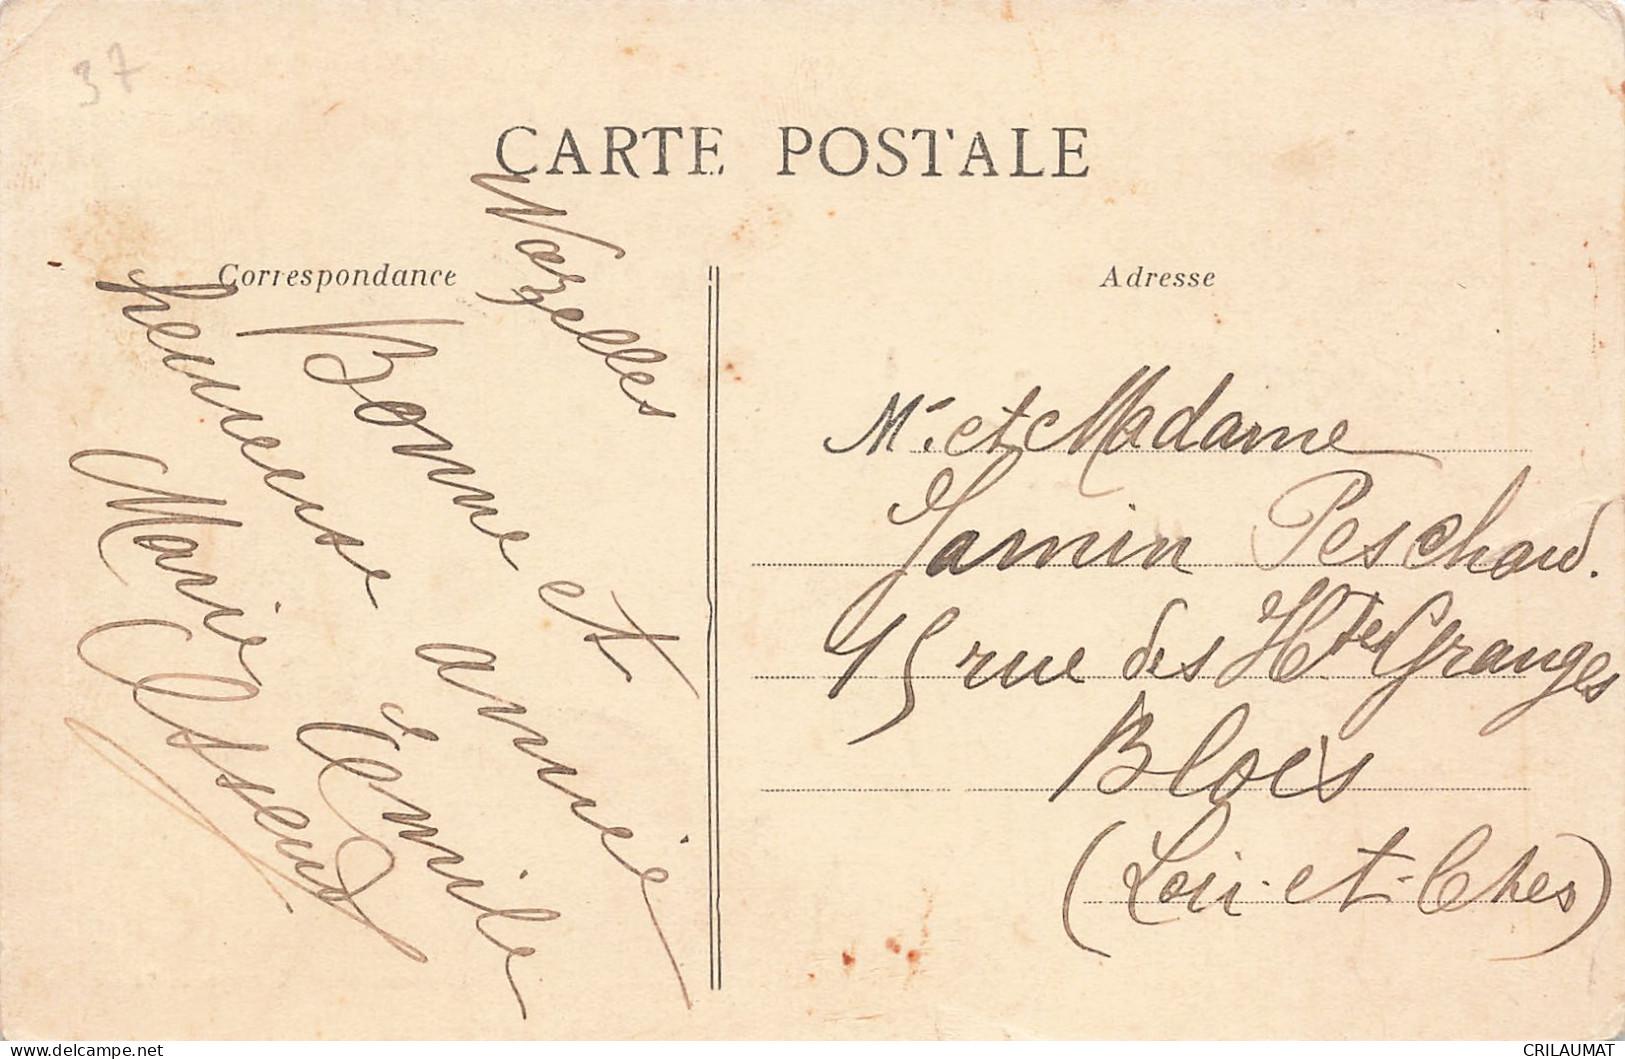 37
CARTE POSTALE
Correspondance
Adresse
Nazelles
Bonne et
heureuse année
Marie Emile
Mr. et Madame
Jamin Peschard.
15 rue des Htes Granges
Blois
(Loir-et-Cher)
CRILAUMAT